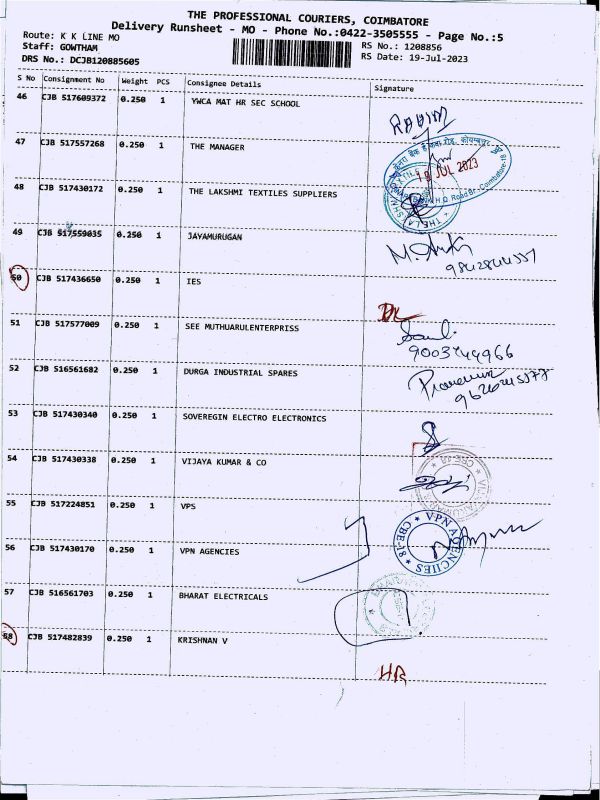 THE PROFESSIONAL COURIERS, COIMBATORE
Delivery Runsheet - MO - Phone No.:0422-3505555 - Page No.:5
Route: K K LINE MO
Staff: GOWTHAM
DRS No.: DCJB120885605
RS No.: 1208856
RS Date: 19-Jul-2023
S No Consignment No Weight PCS Consignee Details Signature
46 CJB 517609372 0.250 1 YWCA MAT HR SEC SCHOOL
47 CJB 517557268 0.250 1 THE MANAGER
JUL 2023
48 CJB 517430172 0.250 1 THE LAKSHMI TEXTILES SUPPLIERS
49 CJB 517559035 0.250 1 JAYAMURUGAN
50 CJB 517436650 0.250 1 IES
51 CJB 517577009 0.250 1 SEE MUTHUARULENTERPRISS
52 CJB 516561682 0.250 1 DURGA INDUSTRIAL SPARES
53 CJB 517430340 0.250 1 SOVEREGIN ELECTRO ELECTRONICS
54 CJB 517430338 0.250 1 VIJAYA KUMAR & CO
55 CJB 517224851 0.250 1 VPS
56 CJB 517430170 0.250 1 VPN AGENCIES
VPN AGENCIIES CBE-18
57 CJB 516561703 0.250 1 BHARAT ELECTRICALS
58 CJB 517482839 0.250 1 KRISHNAN V
HR